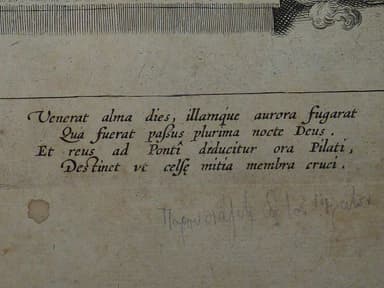 Venerat alma dies, illamque aurora fugarat
Qua fuerat paßus plurima nocte Deus.
Et reus ad Pontî deducitur ora Pilati,
Destinet vt celsę mitia membra cruci.